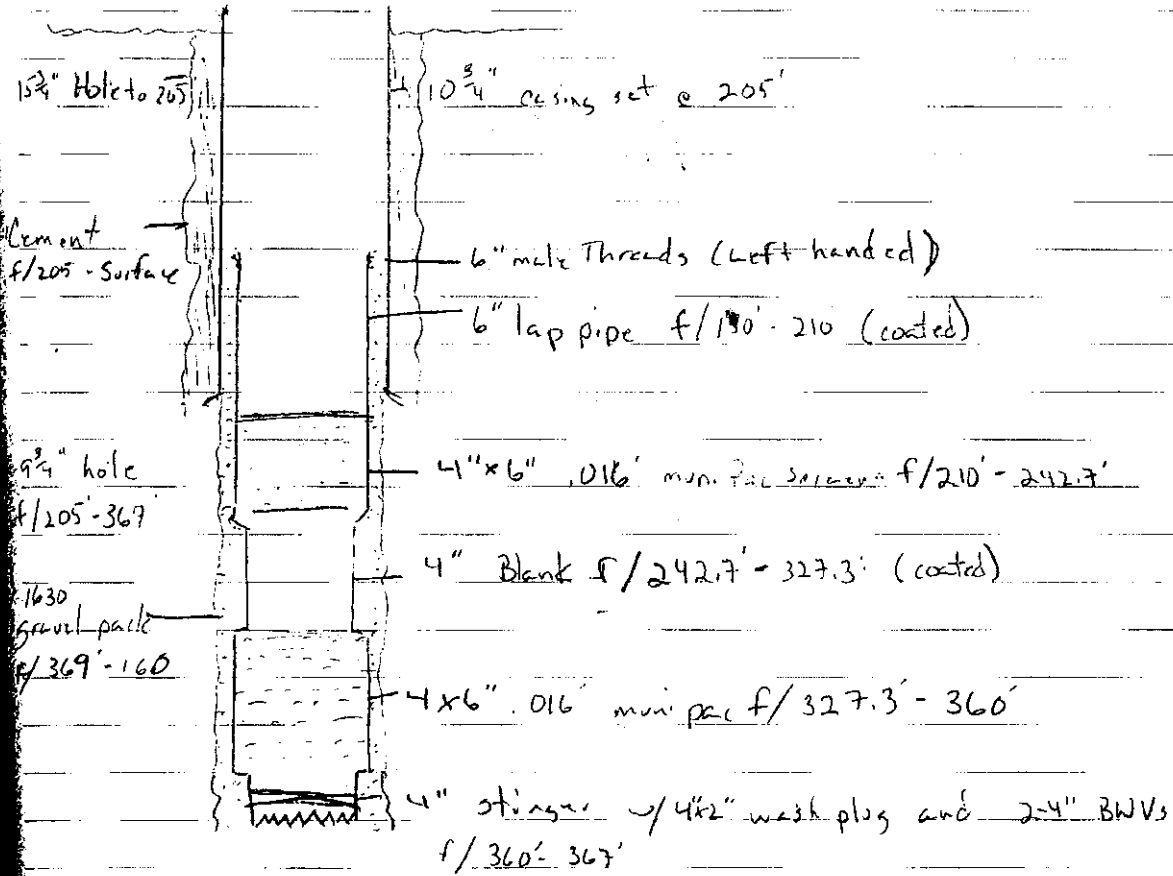 15 3/4" Hole to 205'
10 3/4" casing set @ 205'
Cement
f/205 - Surface
6" male Threads (Left handed)
6" lap pipe f/ - 210 (coated)
9 3/4" hole
f/205'-367'
4"x6" .016' muni Pac Screen f/210' - 242.7'
4" Blank f/242.7' - 327.3' (coated)
1630
gravel pack
f/369'-160
4x6" .016' muni pac f/327.3' - 360'
4" stinger w/ 4"x2" wash plug and 2-4" BWVs
f/360'- 367'